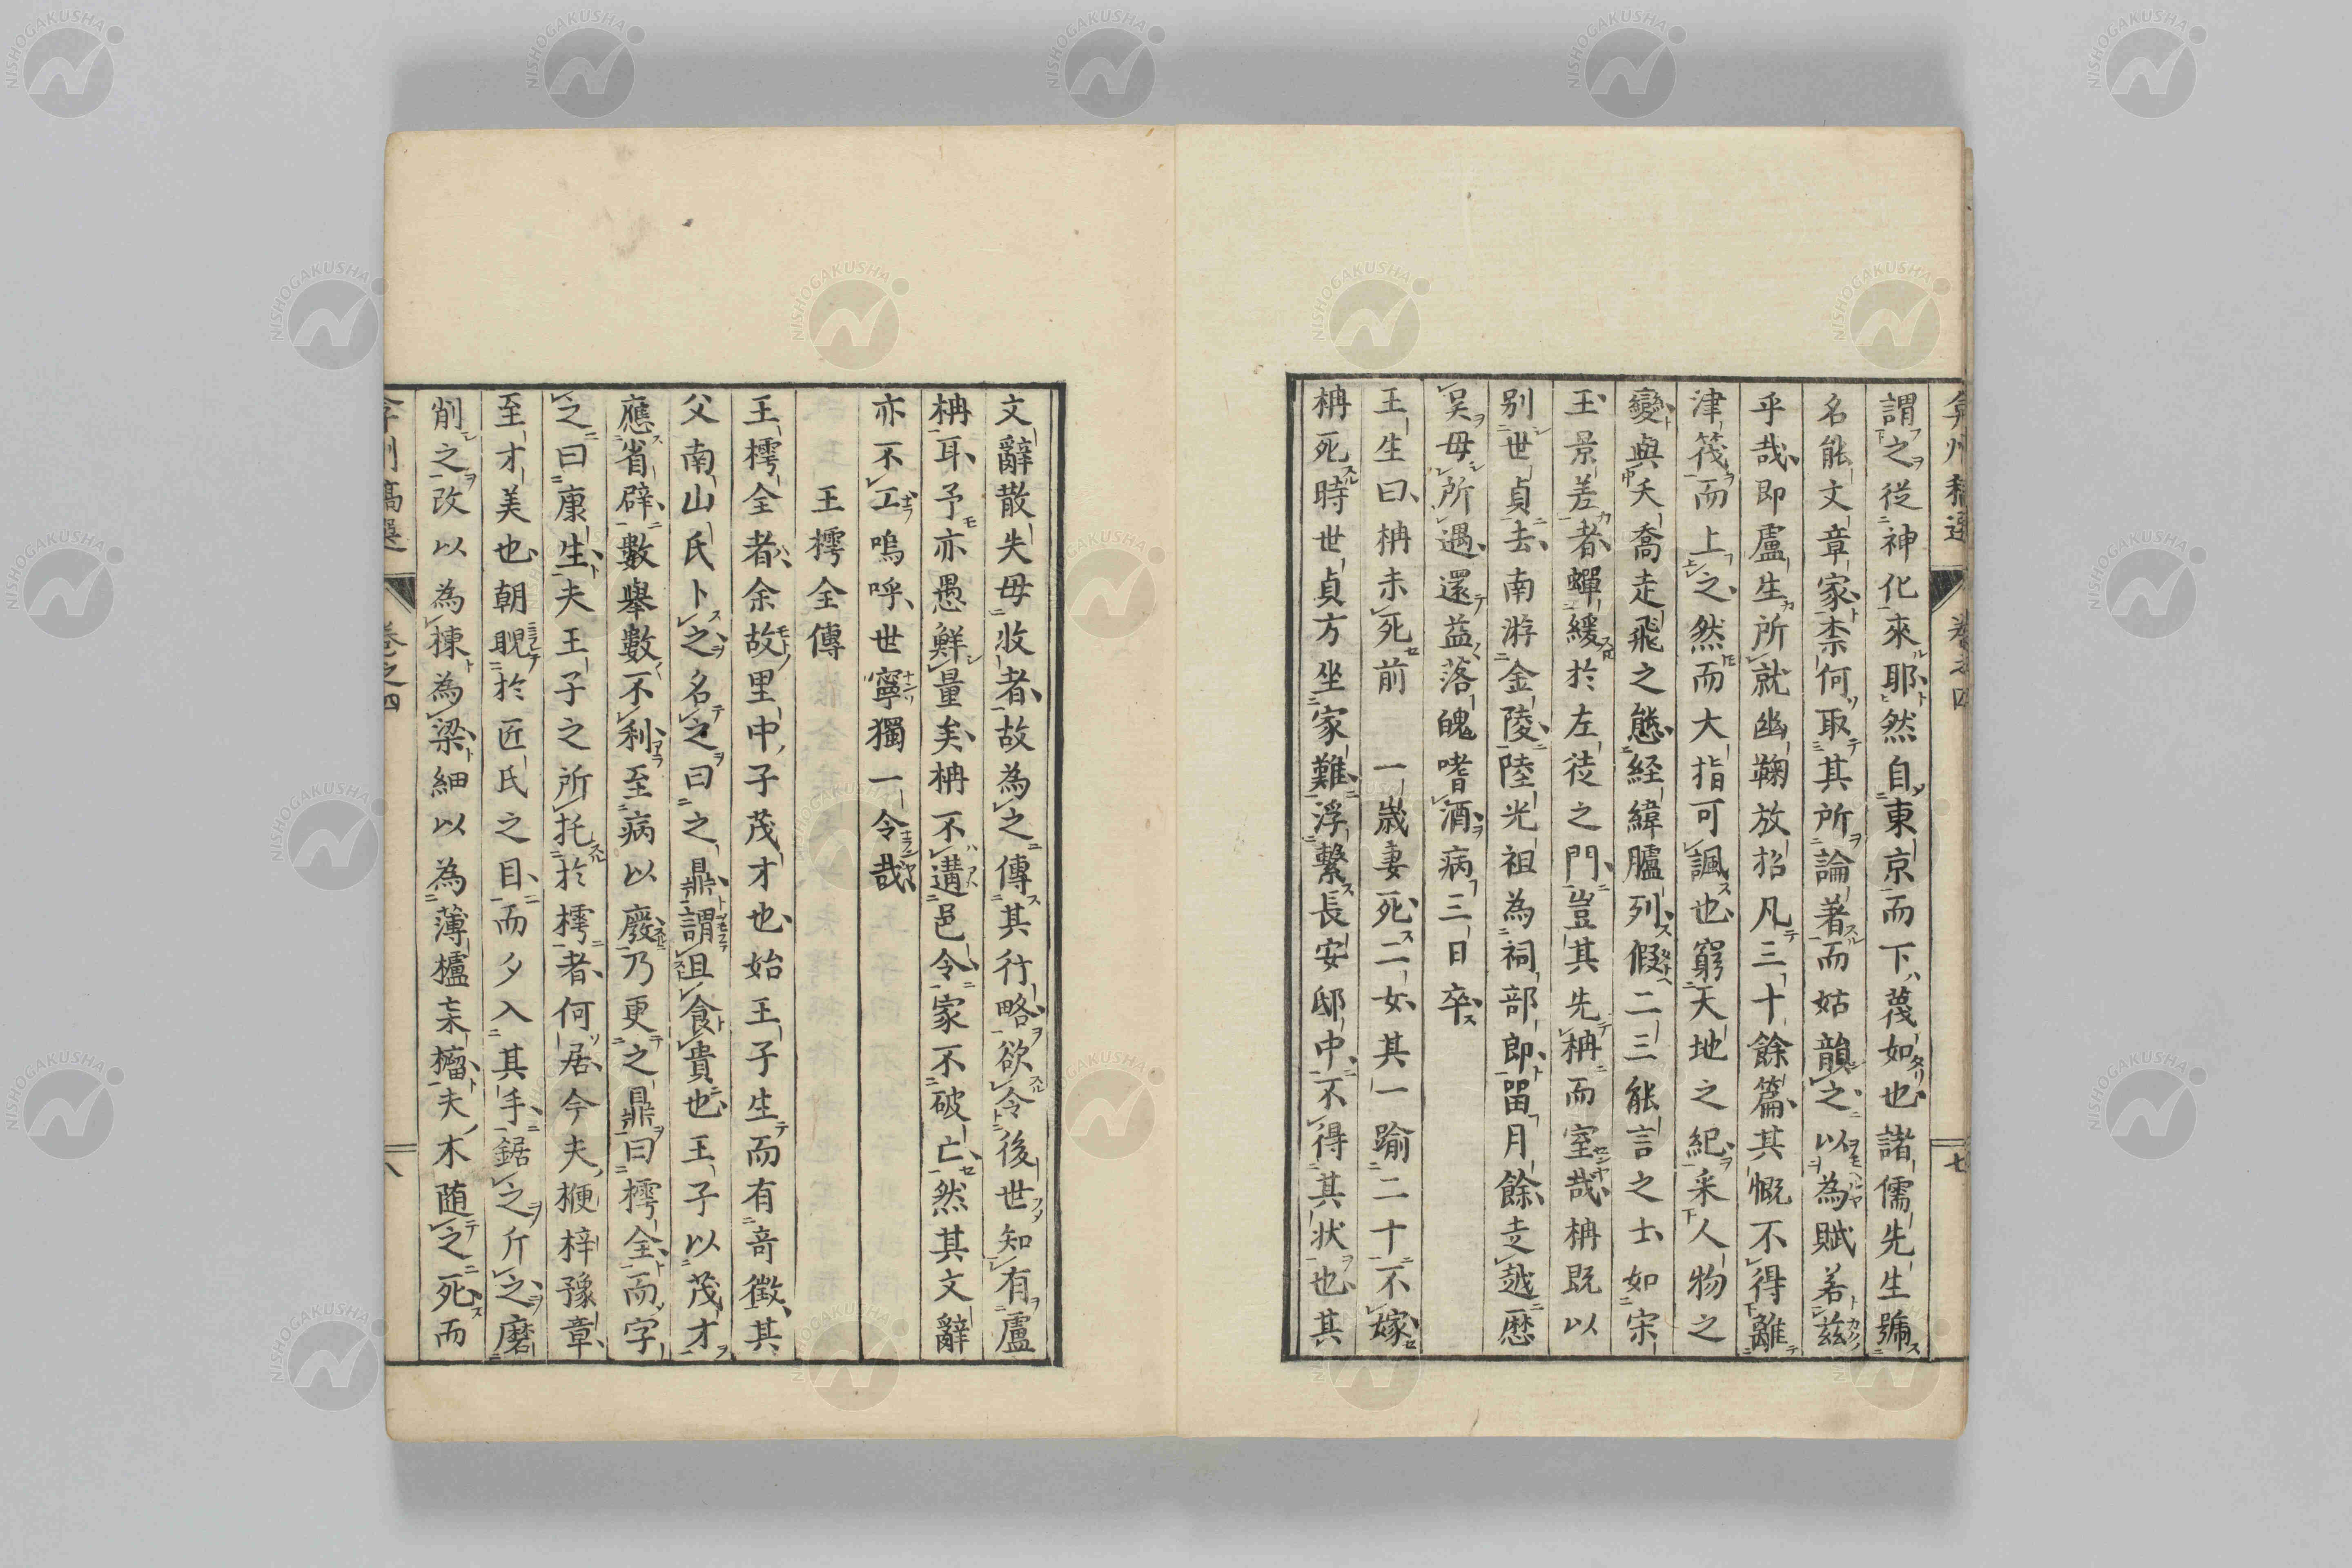 弇州稿選 卷之四 七
謂之從神化來耶然自東京而下蔑如也諸儒先生號
名能文章家柰何取其所論著而姑韻之以為賦若茲
乎哉即盧生所就幽鞠放招凡三十餘篇其慨不得離
津筏而上之然而大指可諷也窮天地之紀采人物之
變與夭喬走飛之態経緯臚列假二三能言之士如宋
玉景差者蟬緩於左徒之門豈其先柟而室哉柟既以
別世貞去南游金陵陸光祖為祠部郎留月餘走越厯
吳毋所遇還益落魄嗜酒病三日卒
王生曰柟未死前一歲妻死二女其一踰二十不嫁
柟死時世貞方坐家難浮繫長安邸中不得其状也其
文辭散失毋收者故為之傳其行略欲令後世知有盧
柟耳予亦愚鮮量矣柟不遘邑令家不破亡然其文辭
亦不工嗚呼世寧獨一令哉
王樗全傳
王樗全者余故里中子茂才也始王子生而有竒徵其
父南山氏卜之名之曰之鼎謂且食貴也王子以茂才
應省辟數舉數不利至病以廢乃更之鼎曰樗全而字
之曰康生夫王子之所托於樗者何居今夫楩梓豫章
至才美也朝睨於匠氏之目而夕入其手鋸之斤之磨
削之改以為棟為梁細以為薄櫨𣏓㯴夫木随之死而
弇州稿選 卷之四 八
NISHOGAKUSHA